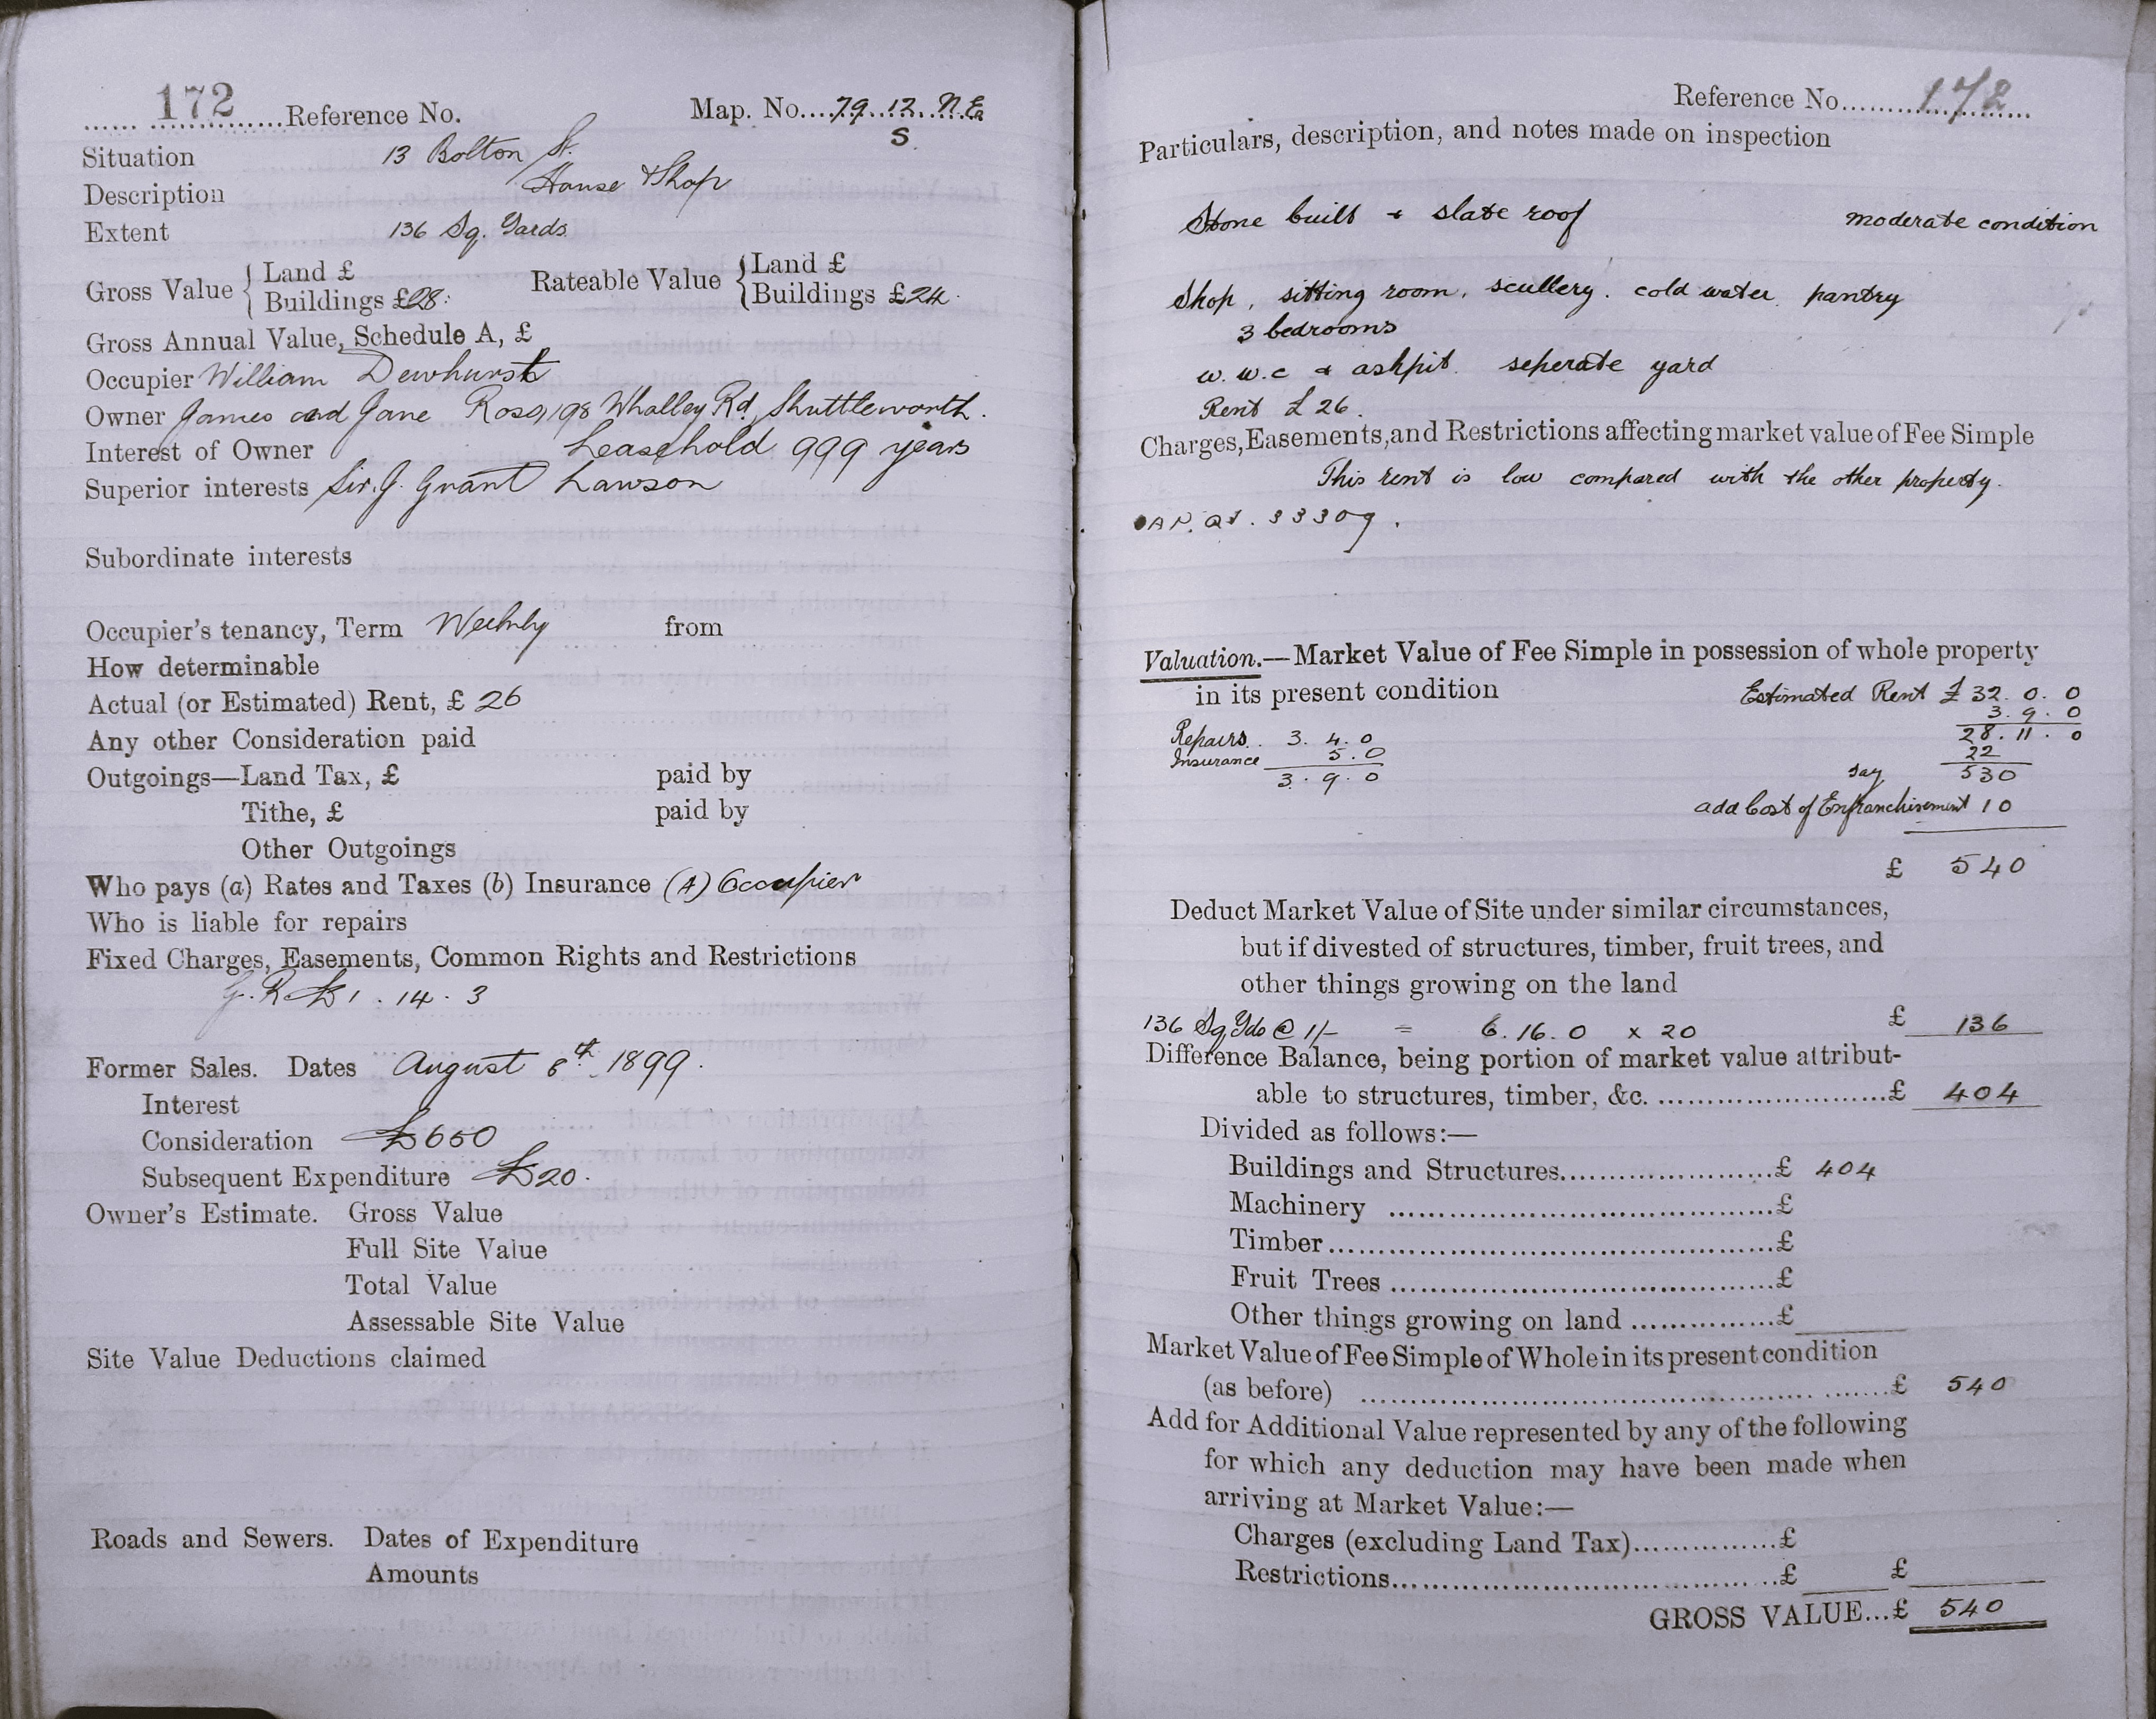 172 Reference No. Map. No. 79.12. N.E
S
Situation 13 Bolton St.
Description House & Shop
Extent 136 Sq. Yards
Gross Value { Land £
Buildings £28 : Rateable Value { Land £
Buildings £24 .
Gross Annual Value, Schedule A, £
Occupier William Dewhurst
Owner James and Jane Ross, 198 Whalley Rd, Shuttleworth.
Interest of Owner Leasehold 999 years
Superior interests Sir. J. Grant Lawson
Subordinate interests
Occupier's tenancy, Term Weekly from
How determinable
Actual (or Estimated) Rent, £ 26
Any other Consideration paid
Outgoings—Land Tax, £ paid by
Tithe, £ paid by
Other Outgoings
Who pays (a) Rates and Taxes (b) Insurance (A) Occupier
Who is liable for repairs
Fixed Charges, Easements, Common Rights and Restrictions
G. R £1 . 14 . 3
Former Sales. Dates August 8th 1899.
Interest
Consideration £650
Subsequent Expenditure £20.
Owner's Estimate. Gross Value
Full Site Value
Total Value
Assessable Site Value
Site Value Deductions claimed
Roads and Sewers. Dates of Expenditure
Amounts
Reference No. 172
Particulars, description, and notes made on inspection
Stone built + slate roof moderate condition
Shop, sitting room, scullery. cold water. pantry
3 bedrooms
w. w. c & ashpit. seperate yard
Rent £ 26.
Charges, Easements, and Restrictions affecting market value of Fee Simple
This rent is low compared with the other property.
3330g.
Valuation.—Market Value of Fee Simple in possession of whole property
in its present condition Estimated Rent £ 32. 0. 0
3. 9. 0
Repairs. 3. 4. 0 28. 11. 0
Insurance 5. 0 22
3. 9. 0 say 530
add Cost of Enfranchisement 10
£ 540
Deduct Market Value of Site under similar circumstances,
but if divested of structures, timber, fruit trees, and
other things growing on the land
136 Sq Yds @ 1/- = 6. 16. 0 x 20 £ 136
Difference Balance, being portion of market value attribut-
able to structures, timber, &c. £ 404
Divided as follows:—
Buildings and Structures £ 404
Machinery £
Timber £
Fruit Trees £
Other things growing on land £
Market Value of Fee Simple of Whole in its present condition
(as before) £ 540
Add for Additional Value represented by any of the following
for which any deduction may have been made when
arriving at Market Value:—
Charges (excluding Land Tax) £
Restrictions £ £
GROSS VALUE...£ 540